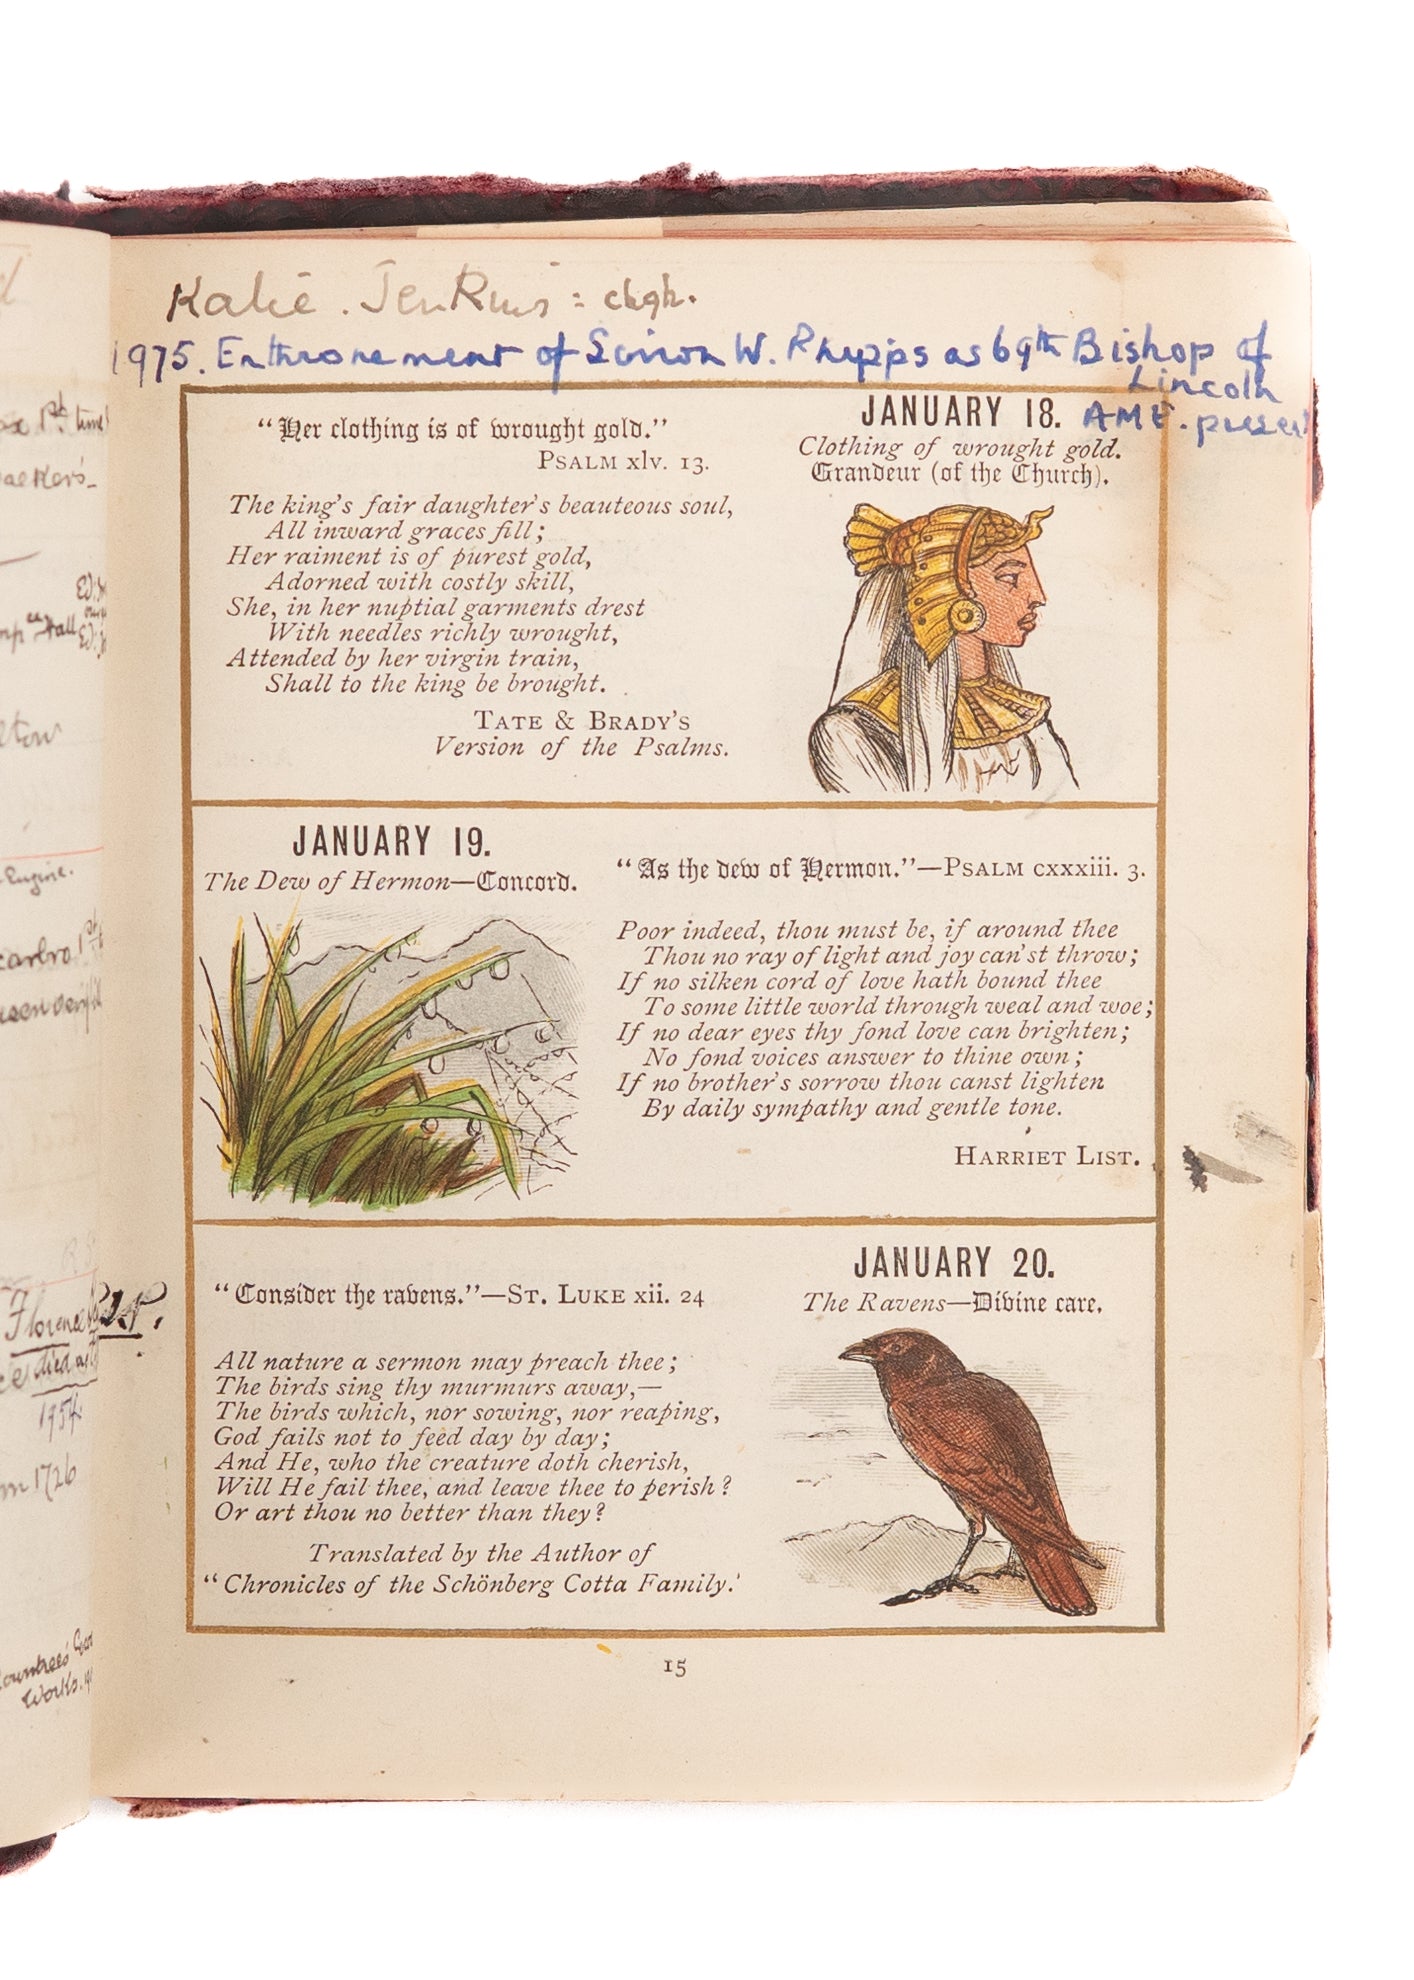 Katie. Jenkins = chgh.
1975. Enthronement of Simon W. Phipps as 69th Bishop of
Lincoln
AME. present
"Her clothing is of wrought gold."
PSALM xlv. 13.
The king's fair daughter's beauteous soul,
All inward graces fill;
Her raiment is of purest gold,
Adorned with costly skill,
She, in her nuptial garments drest
With needles richly wrought,
Attended by her virgin train,
Shall to the king be brought.
TATE & BRADY'S
Version of the Psalms.
JANUARY 18.
Clothing of wrought gold.
Grandeur (of the Church).
JANUARY 19.
The Dew of Hermon—Concord.
"As the dew of Hermon."—PSALM cxxxiii. 3.
Poor indeed, thou must be, if around thee
Thou no ray of light and joy can'st throw;
If no silken cord of love hath bound thee
To some little world through weal and woe;
If no dear eyes thy fond love can brighten;
No fond voices answer to thine own;
If no brother's sorrow thou canst lighten
By daily sympathy and gentle tone.
HARRIET LIST.
"Consider the ravens."—ST. LUKE xii. 24
All nature a sermon may preach thee;
The birds sing thy murmurs away,—
The birds which, nor sowing, nor reaping,
God fails not to feed day by day;
And He, who the creature doth cherish,
Will He fail thee, and leave thee to perish?
Or art thou no better than they?
Translated by the Author of
"Chronicles of the Schönberg Cotta Family.'
JANUARY 20.
The Ravens—Divine care.
15
1st time
Engine.
Florence
died
1954
1726
Works.